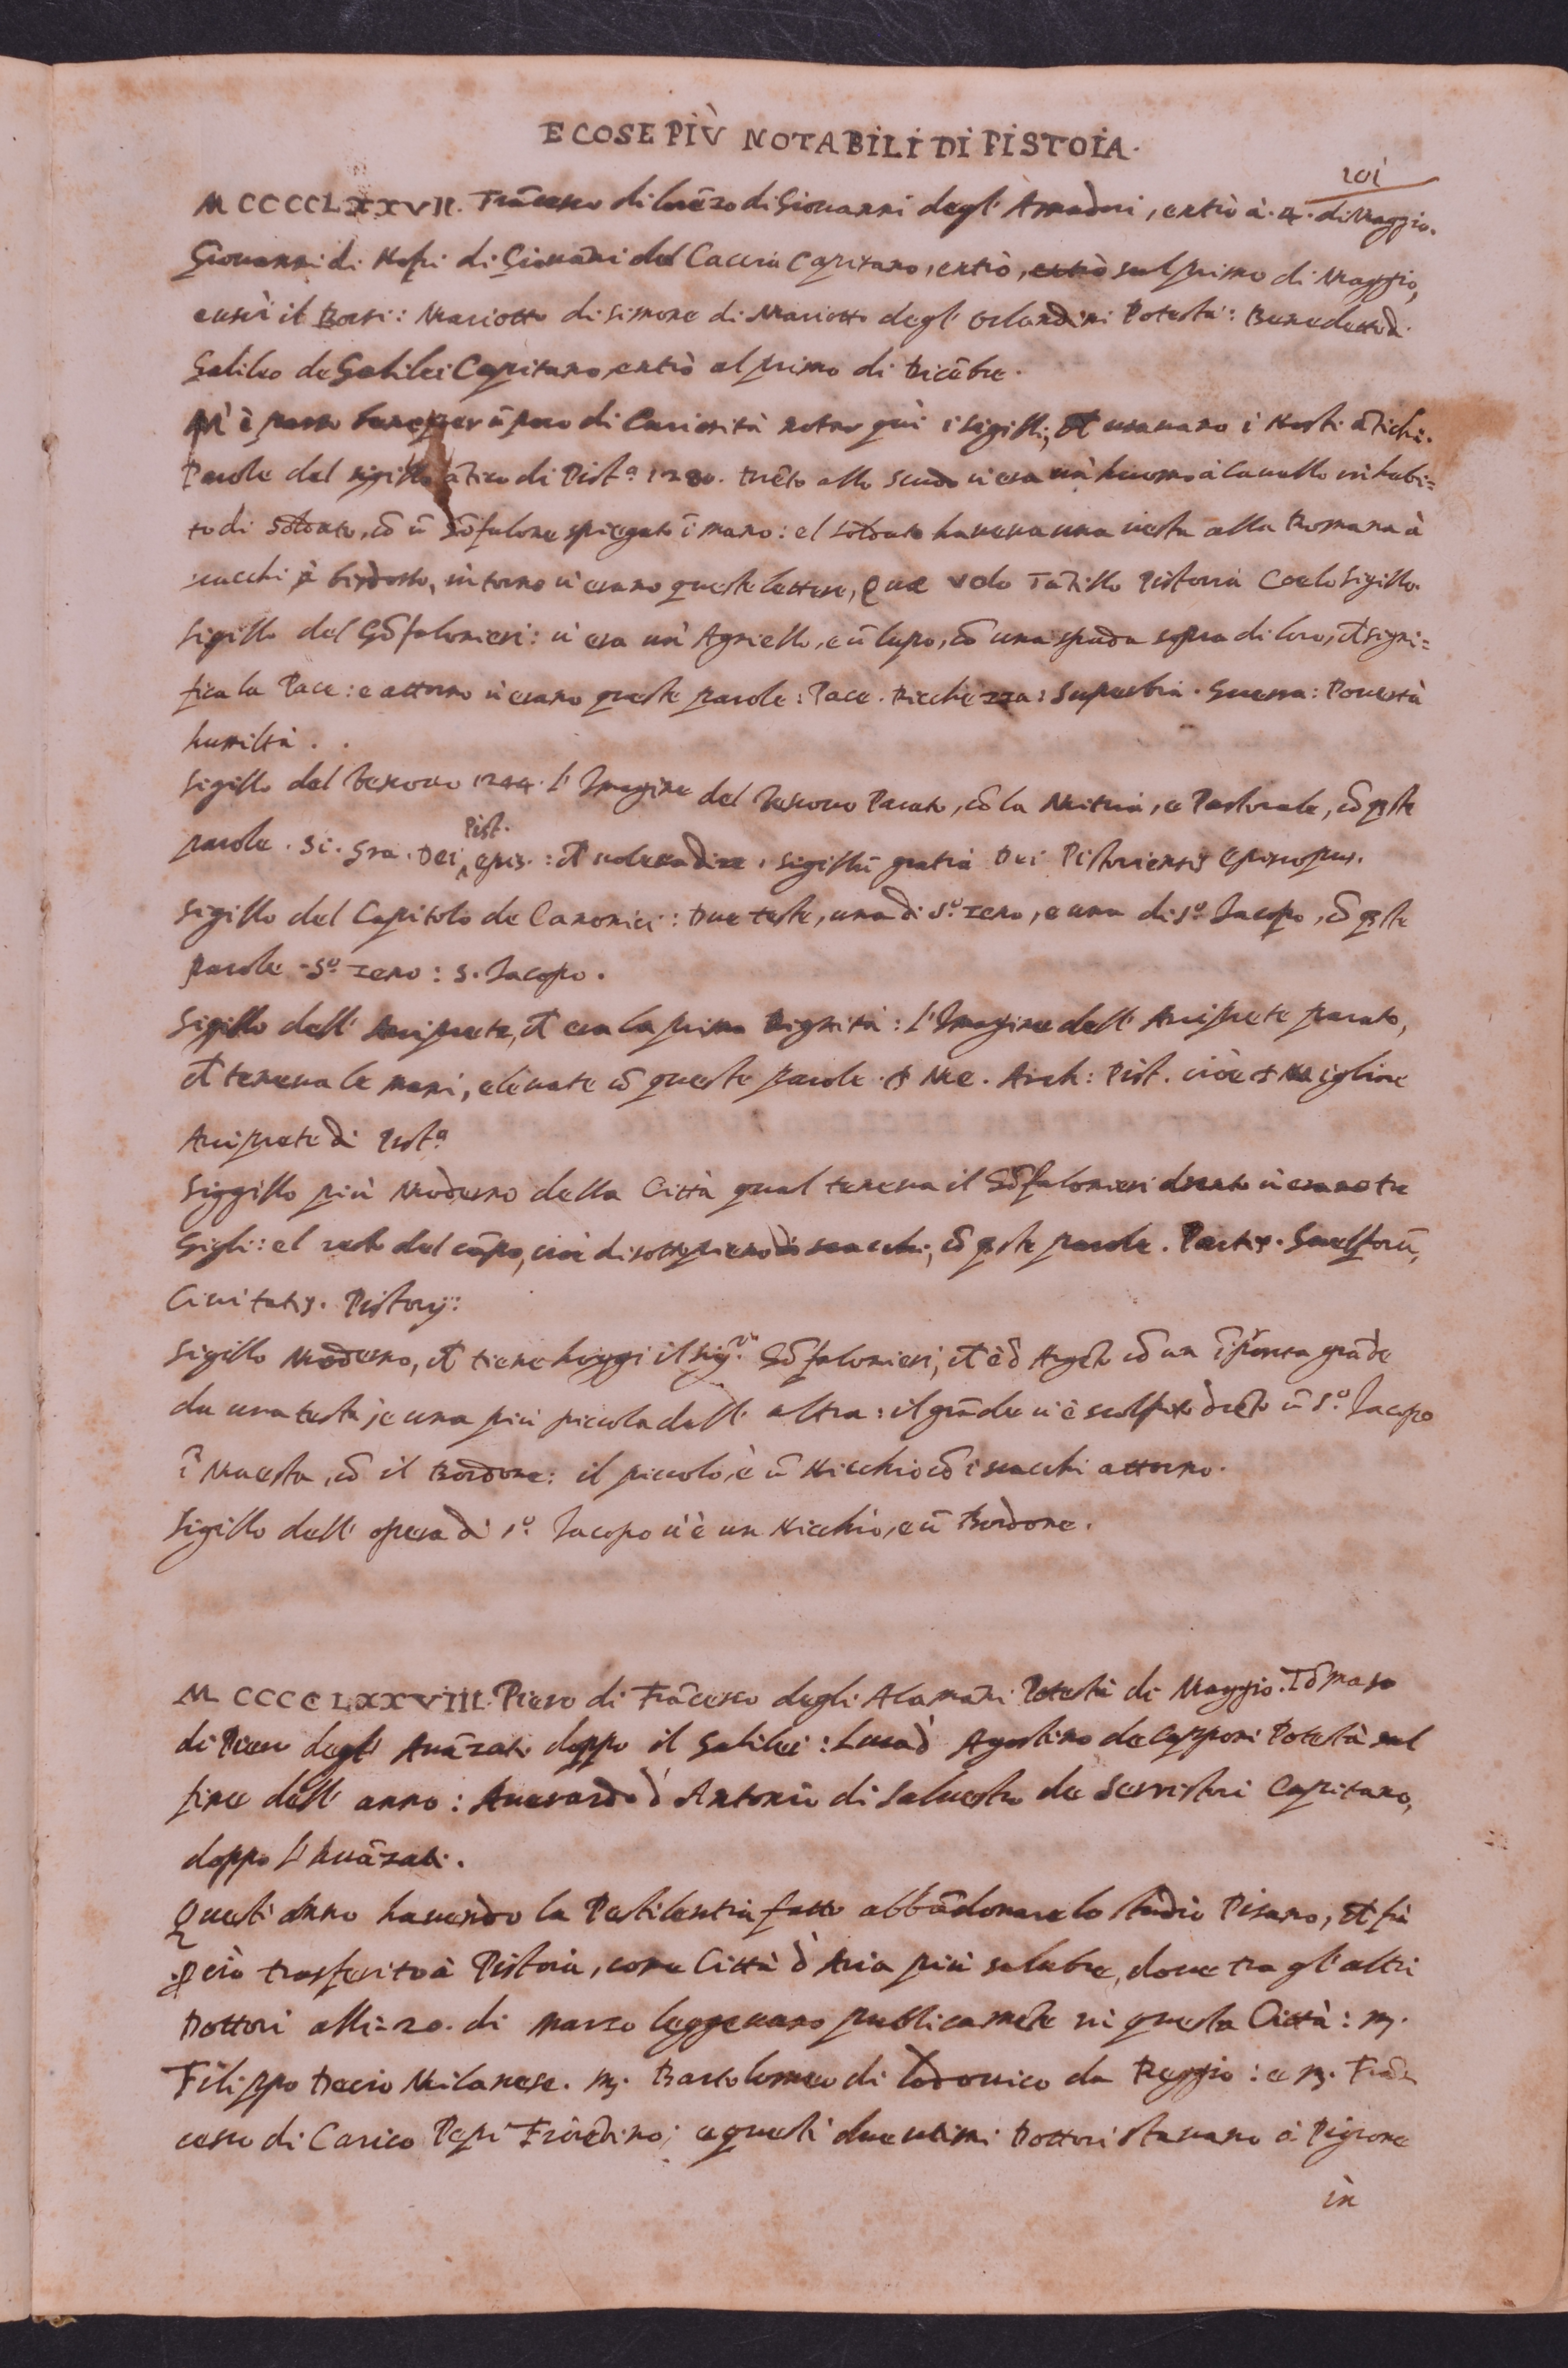 E COSE PIÙ NOTABILI DI PISTOIA.
101
MCCCCLXXVII. Frãcesco di Lorẽzo di Giovanni degl' Amadori, entrò à. 4. di Maggio.
Giovanni di Nofri di Giovãni del Caccia Capitano, entrò, entrò sul primo di Maggio,
e uscì il Borsi: Mariotto di Simone di Mariotto degl' Orlandini Potestà: Benedetto di
Galileo de Galilei Capitano, entrò al primo di Dicẽbre.
M' è parso bene per ũ poco di Curiosità notar quì i sigilli, ch̃ usavano i Nostri ãtichi.
Parole del sigillo ãtico di Pist.ª 1280. Drẽto allo scudo vi era un' huomo à Cavallo in habi=
to di Soldato, cõ ũ Gõfalone spiegato ĩ mano: el soldato haveva una vesta alla Romana à
scacchi à bisdosso, intorno vi erano queste lettere, Quæ volo Tãtillo Pistoria Coelo Sigillo.
Sigillo del Gõfalonieri: vi era un' Agniello, e ũ lupo, cõ una spada sopra di loro, ch̃ signi=
fica la Pace: e attorno vi erano queste parole: Pace. Ricchezza: Superbia. Guerra: Povertà
humiltà..
Sigillo del Vescovo 1244. L' Imagine del Vescovo Parato, cõ la Mitria, e Pastorale, cõ q̃ste
Pist.
parole. Si. Gra. Dei, epis.: ch̃ voleva dire. Sigillũ gratia Dei Pistoriensis Episcopus.
Sigillo del Capitolo de Canonici: Due teste, una di S.º Zeno, e una di S.º Jacopo, cõ q̃ste
parole. S.º Zeno: S. Jacopo.
Sigillo dell' Arciprete, ch̃ era la prima Dignità: L' Imagine dell' Arciprete parato,
ch̃ teneva le mani, elevate cõ queste parole. + Me. Arch: Pist. cioè + Migliore
Arciprete di Pist.ª
Siggillo più Moderno della Città qual teneva il Gõfalonieri drento vi erano tre
Gigli: el resto del cãpo, cioè di sotto pieno di scacchi, cõ q̃ste parole. Partis. Guelforũ,
Civitatis. Pistorij:
Sigillo Moderno, ch̃ tiene hoggi il Sig.re Gõfalonieri, ch̃ è d' Argẽto cõ un ĩprõta grãde
da una testa, e una più piccola dall' altra: il grãde vi è scolpito drẽto ũ S.º Jacopo
ĩ Maestà, cõ il Bordone: il piccolo, è ũ Nicchio cõ i scacchi attorno.
Sigillo dell' opera di S.º Jacopo vi è un Nicchio, e ũ Bordone.
MCCCCLXXVIII. Piero di Frãcesco degli Alamãni Potestà di Maggio. Tõmaso
di Piero degl' Avãzati doppo il Galilei: Luca d' Agostino de Capponi Potestà sul
fine dell' anno: Averardo d' Antonio di Salvestro de Serristori Capitano,
doppo l' Avãzati.
Quest' anno havendo la Pestilentia fatto abbãdonare lo studio Pisano, ch̃ fù
però trasferito à Pistoia, come Città d' Aria più salubre, dove tra gl' altri
Dottori alli 20. di Marzo leggevano publicamẽte in questa Città: m.
Filippo Decio Milanese. m. Bartolomeo di Lodovico da Reggio: e m. Frãn
cesco di Carico Pepi Fiorẽtino; e questi due ultimi Dottori stavano à Pigione
in